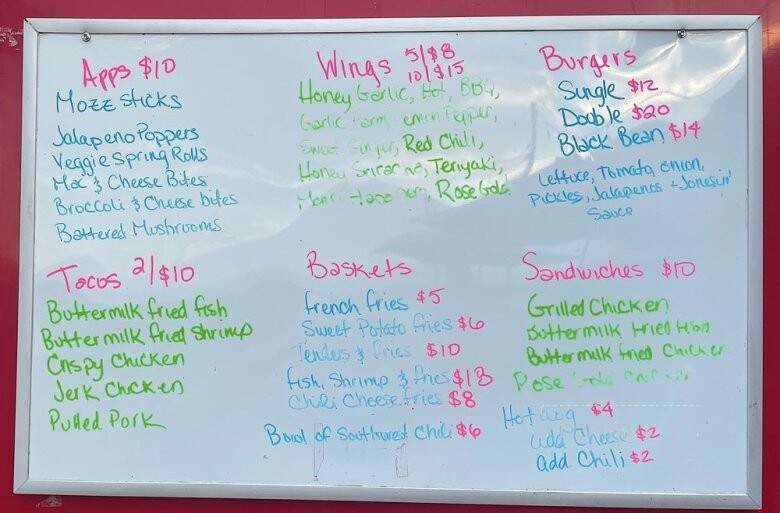 Apps $10
Mozz Sticks
Jalapeno Poppers
Veggie Spring Rolls
Mac & Cheese Bites
Broccoli & Cheese bites
Battered Mushrooms
Wings 5/$8
10/$15
Honey Garlic, Hot, BBQ,
Garlic Parm, Pepper,
Red Chili,
Honey Teriyaki,
Rose Gold
Burgers
Single $12
Double $20
Black Bean $14
Lettuce, Tomato, onion,
Pickles, Jalapenos + Jonesin'
Sauce
Tacos 2/$10
Buttermilk fried fish
Buttermilk fried Shrimp
Crispy Chicken
Jerk Chicken
Pulled Pork
Baskets
french fries $5
Sweet Potato fries $6
Tenders & fries $10
fish, Shrimp & fries $18
Chili Cheese fries $8
Bowl of Southwest Chili $6
Sandwiches $10
Grilled Chicken
Buttermilk fried fish
Buttermilk fried Chicken
Rose Gold
Hot dog $4
add Cheese $2
add Chili $2